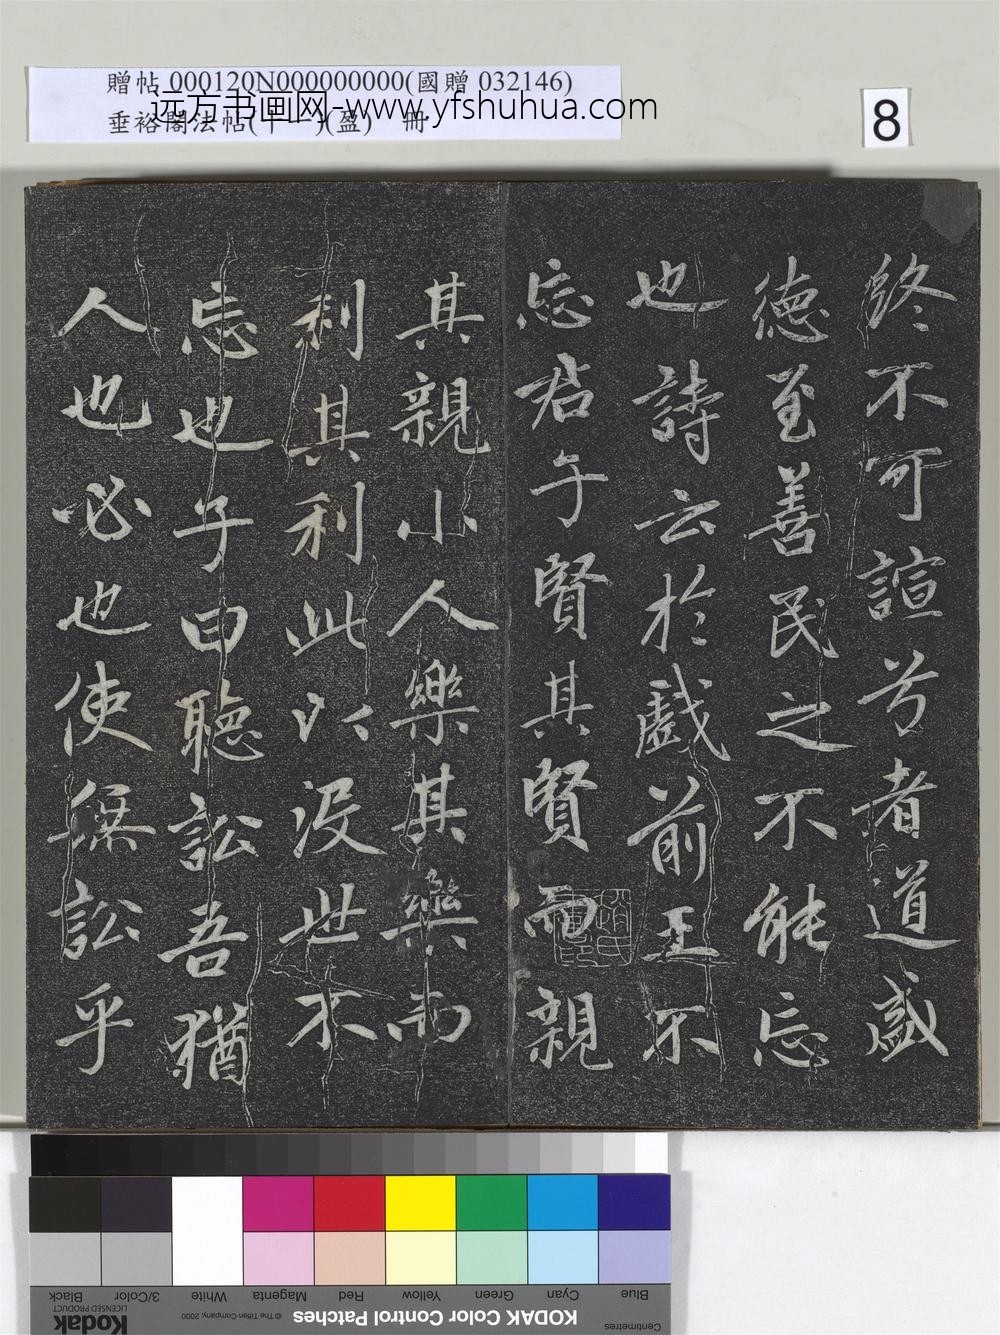 贈帖 000120N000000000(國贈 032146)
远方书画网-www.yfshuhua.com
垂裕閣法帖(十一)(盈) 冊
8
終不可諠兮者道盛
德至善民之不能忘
也詩云於戲前王不
忘君子賢其賢而親
其親小人樂其樂而
利其利此以没世不
忘也子曰聽訟吾猶
人也必也使無訟乎
Black
3/Color
White
Magenta
Red
Yellow
Green
Cyan
Blue
Kodak
LICENSED PRODUCT
© The Tiffen Company, 2000
KODAK Color Control Patches
Centimetres